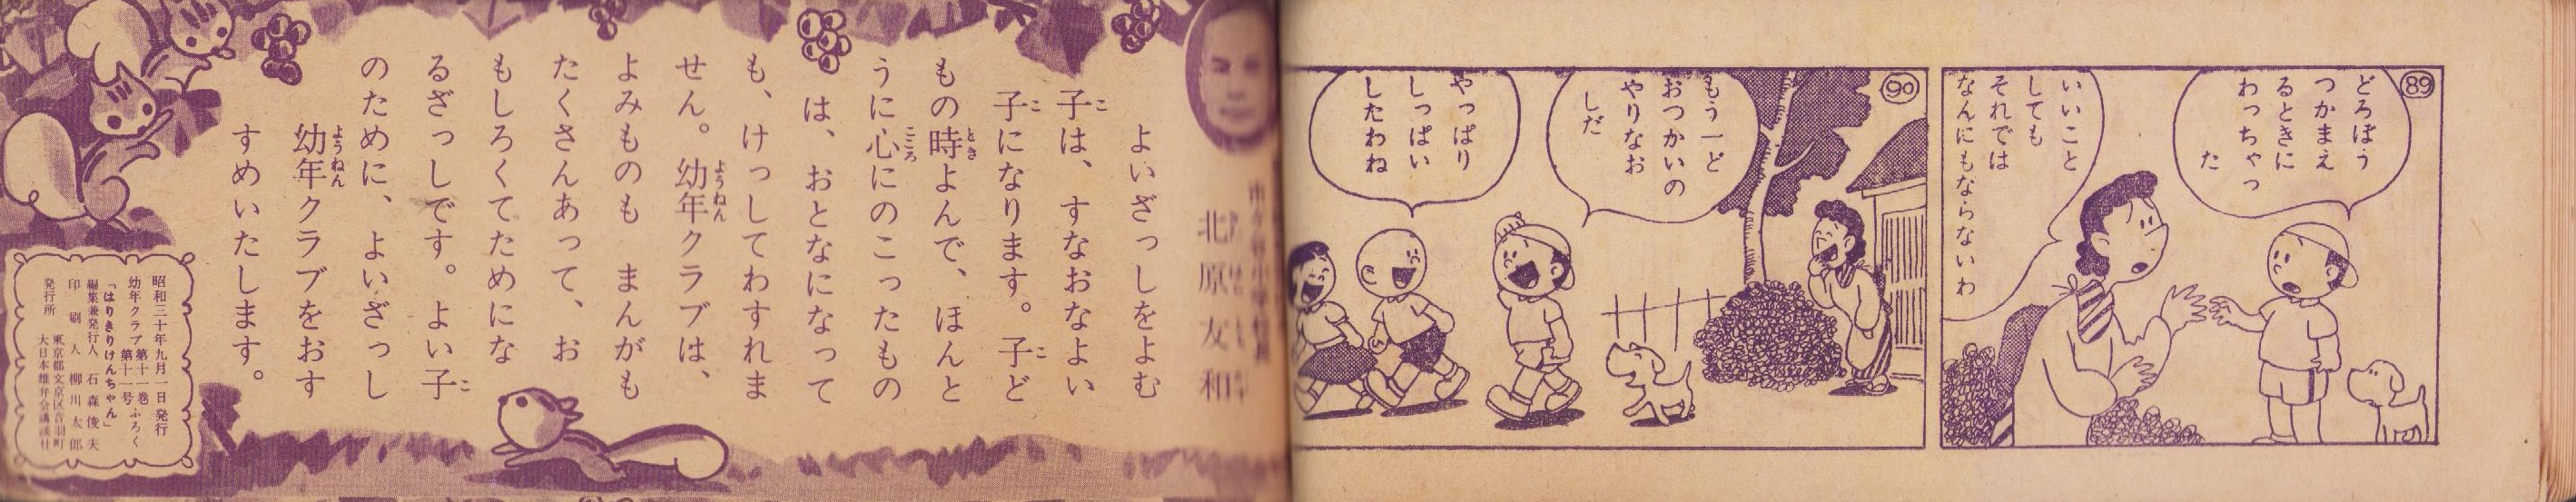 89
どろぼう
つかまえ
るときに
わっちゃっ
た
いいこと
しても
それでは
なんにもならないわ
90
もう一ど
おつかいの
やりなお
しだ
やっぱり
しっぱい
したわね
北原友和
よいざっしをよむ
子は、すなおなよい
子になります。子ど
もの時よんで、ほんと
うに心にのこったもの
は、おとなになって
も、けっしてわすれま
せん。幼年クラブは、
よみものも まんがも
たくさんあって、お
もしろくてためにな
るざっしです。よい子
のために、よいざっし
幼年クラブをおす
すめいたします。
昭和三十年九月一日発行
幼年クラブ第十一巻第十一号ふろく
「はりきりけんちゃん」
編集兼発行人 石森俊夫
印刷人 柳川太郎
東京都文京区音羽町
発行所 大日本雄弁会講談社